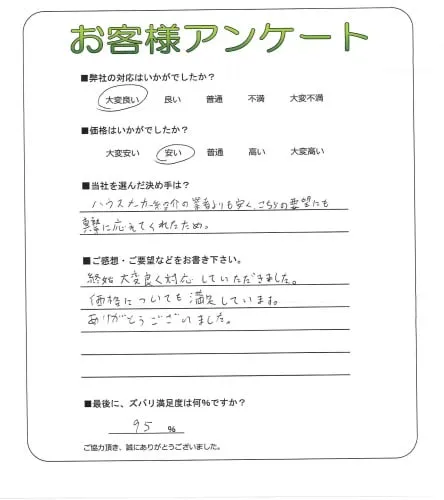 お客様アンケート
■弊社の対応はいかがでしたか?
大変良い 良い 普通 不満 大変不満
■価格はいかがでしたか?
大変安い 安い 普通 高い 大変高い
■当社を選んだ決め手は?
ハウスメーカー紹介の業者よりも安く、こちらの要望にも
真摯に応えてくれたため。
■ご感想・ご要望などをお書き下さい。
終始大変良く対応していただきました。
価格についても満足しています。
ありがとうございました。
■最後に、ズバリ満足度は何%ですか?
95 %
ご協力頂き、誠にありがとうございました。